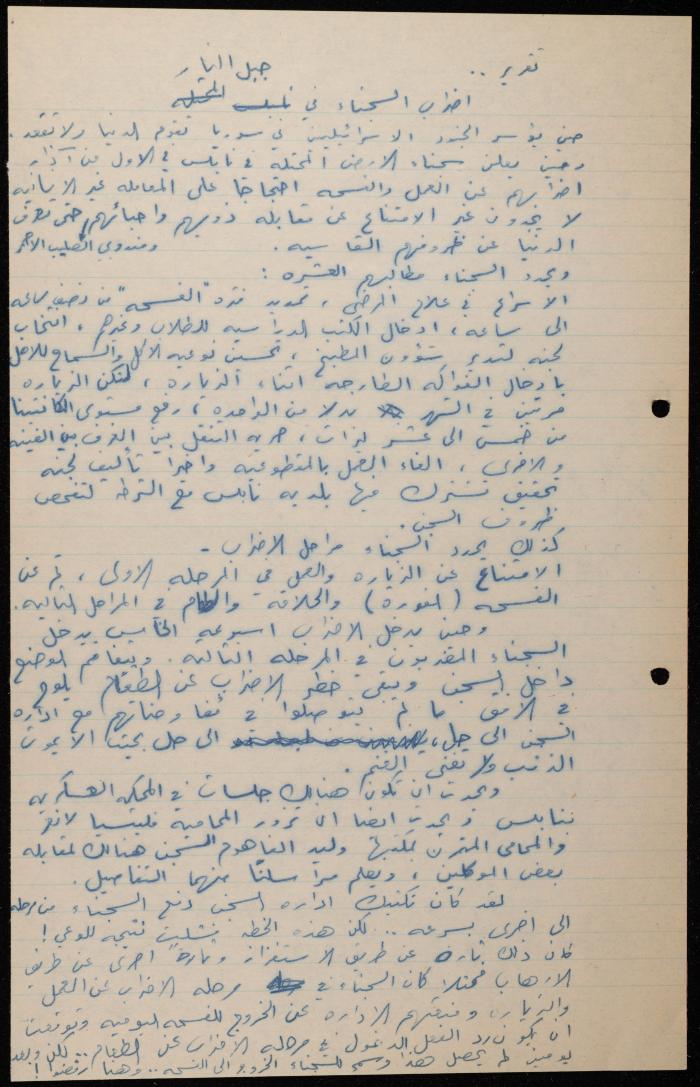 تقرير .. جبل النار
اضراب السجناء في نابلس المحتله
حين يؤسر الجنود الاسرائيليين في سوريا تقوم الدنيا ولا تقعد.
وحين يعلن سجناء الارض المحتله في نابلس في الاول من آذار
اضرابهم عن العمل والفسحه احتجاجا على المعامله غير الانسانيه
لا يجدون غير الامتناع عن مقابله ذويهم واحبائهم حتى تعرف
ومندوبي الصليب الاحمر
الدنيا عن ظروفهم القاسيه.
ويحدد السجناء مطالبهم العشره :
الاسراع في علاج المرضى ، تمديد فتره "الفسحه" من نصف ساعه
الى ساعه ، ادخال الكتب الدراسيه للطلاب وغيرهم ، انتخاب
لجنه لتدير شؤون المطبخ ، تحسين نوعيه الاكل والسماح للاهل
بادخال الفواكه الطازجه اثناء الزياره ، لتكن الزياره
مرتين في الشهر بدلا من الواحده ، رفع مستوى الكانتينا
من خمس الى عشر ليرات ، حريه التنقل بين الغرف بين الفينه
والاخرى ، الغاء العمل بالمقطوعيه واخيرا تأليف لجنه
تحقيق تشترك فيها بلديه نابلس مع الشرطه لتفحص
ظروف السجن.
كذلك يحدد السجناء مراحل الاضراب -
الامتناع عن الزياره والعمل في المرحله الاولى ، ثم عن
الفسحه (الفوره) والحلاقه والطعام في المراحل التاليه.
وحين يدخل الاضراب اسبوعه الخامس يدخل
السجناء المضربون في المرحله التاليه. ويتفاقم الوضع
داخل السجن ويبقى خطر الاضراب عن الطعام يلوح
في الافق ما لم يتوصلوا في مفاوضاتهم مع اداره
السجن الى حل ، الى حل بحيث لا يموت
الذئب ولا يفنى الغنم.
ويحدث ان تكون هنالك جلسات في المحكمه العسكريه
بنابلس ويحدث ايضا ان تزور المحاميه فليتسيا لانغر
والمحامي المتمرن بمكتبها وليد الفاهوم السجن هنالك لمقابله
بعض الموكلين ، ويعلم منهما التفاصيل.
لقد كان تكتيك اداره السجن دفع السجناء من مرحله
الى اخرى بسرعه .. لكن هذه الخطه فشلت نتيجه للوعي !
كان ذلك تارة عن طريق الاستفزاز وتارة اخرى عن طريق
الارهاب فمثلا كان السجناء في مرحله الاضراب عن العمل
والزياره ومنعتهم الاداره عن الخروج للفسحه اليوميه وتوقعت
ان يكون رد الفعل الدخول في مرحله الاضراب عن الطعام .. لكن وبعد
يومين لم يحصل هذا وسمح للسجناء الخروج الى الفسحه .. وهنا رفضوا !